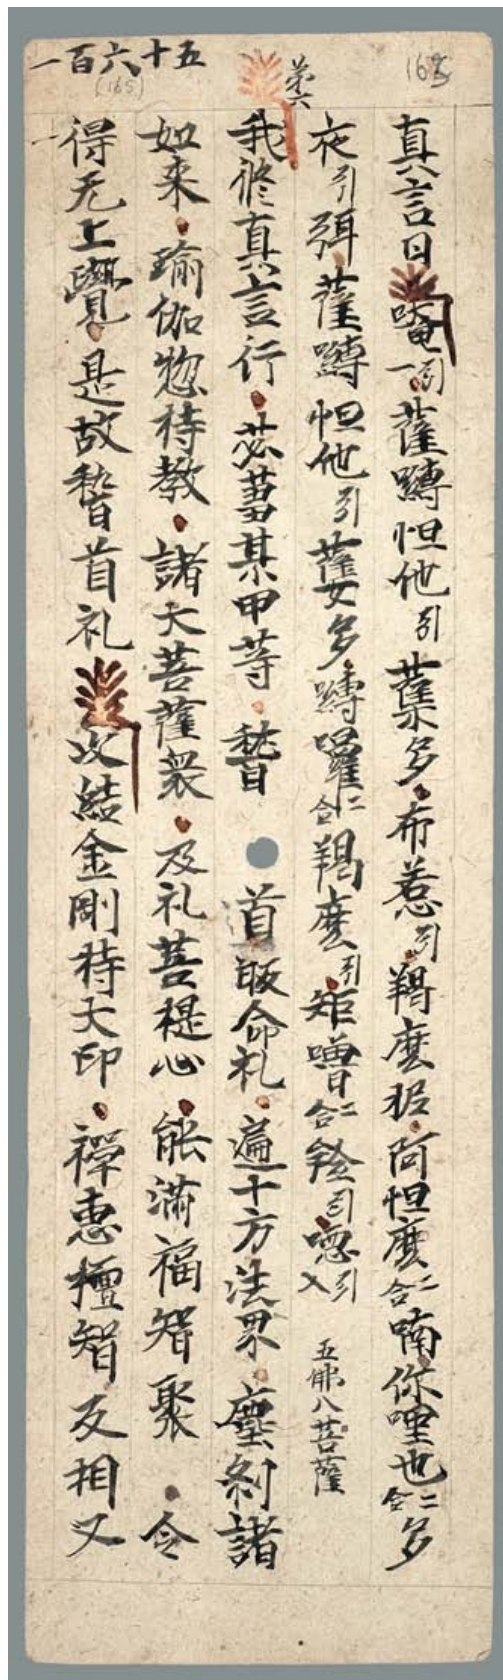 一百六十五
(165)
第六
165
真言曰唵引一薩嚩怛他引蘖多布惹引羯麽抳阿怛麽二合喃你哩也二合多
夜引弭薩嚩怛他引蘖多嚩囉二合羯麽引矩嚕二合引噁引入五佛八菩薩
我修真言行苾蒭某甲等稽首道皈命礼遍十方法界塵刹諸
如来瑜伽惣持教諸大菩薩衆及礼菩提心能滿福智聚令
得无上覺是故稽首礼次結金剛持大印禪恵檀智反相叉